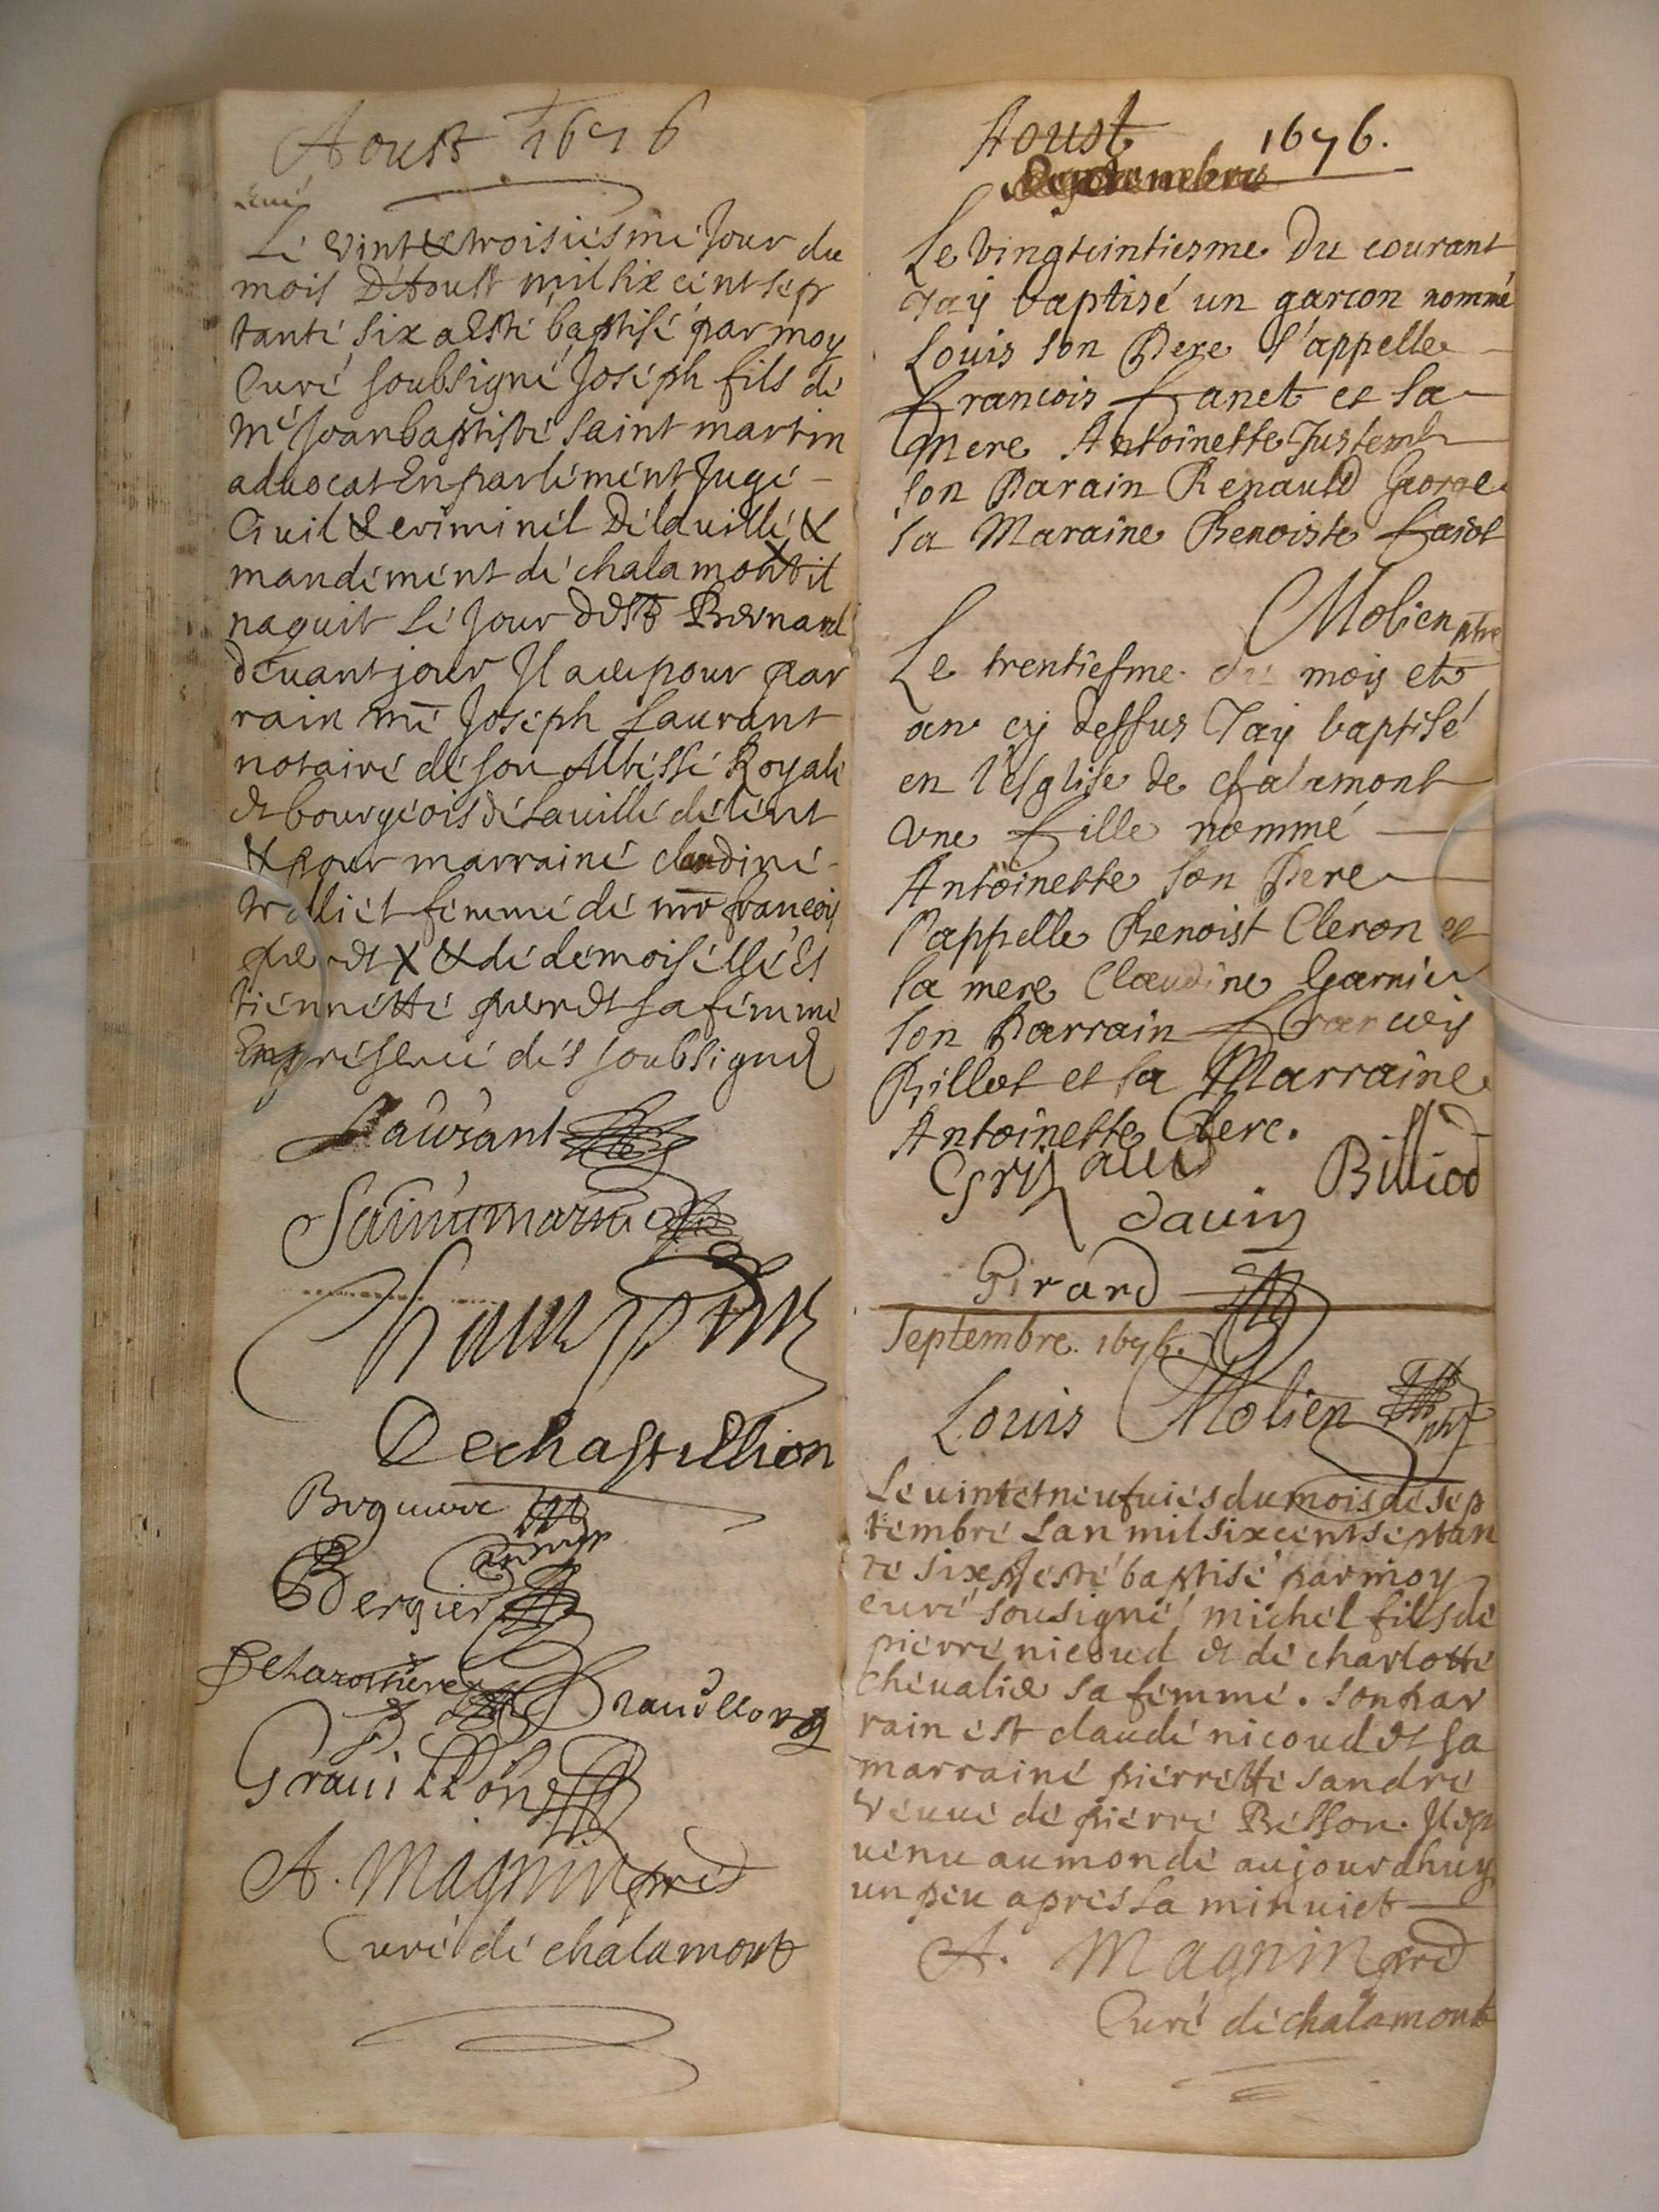 Aoust 1676
Le vint & troisiesme Jour du
mois D'Aoust mil six cent sep
tante six a Esté baptisé par moy
Curé soubsigné Joseph fils de
Me Jean baptiste saint martin
aduocat En parlement Juge
Ciuil & criminel De la uille &
mandement de chalamont il
naquit le Jour de St Bernard
deuant jour Il a eu pour par
rain me Joseph Laurant
notaire de son Altesse Royale
et bourgeois de la uille de
& pour marraine claudine
trolliet femme de mre francois
X & de demoiselle Es
tiennette sa femme
En presence des soubsignes
Laurant
Saintmartin
Dechastillion
Berguier
Grauillon
A. Magnin
Curé de chalamont
Aoust 1676.
Le du courant
Jay baptisé un garcon nommé
Louis son Pere s'appelle
francois fanet et sa
Mere Antoinette
son Parain Renauld George
sa Maraine Benoiste
Molien ptre
Le trentiesme du mois et
an cy dessus Jay baptisé
en l'esglise de chalamont
vne fille nommé
Antoinette son Pere
s'appelle Benoist Cleron et
sa mere Claudine Garnier
son Parrain francois
Billot et sa Marraine
Antoinette Clerc.
Billiod
dauin
Girard
Septembre. 1676.
Louis Molien
Le uint et neufuies du mois de sep
tembre Lan mil six cent septan
te six esté baptisé par moy
curé sousigné michel fils de
pierre nicoud et de charlotte
cheualie sa femme. son par
rain est claude nicoud et sa
marraine pierrette sandre
veuue de pierre Besson. Il est
uenu au monde aujourdhuy
un peu apres la minuict
A. Magnin
Curé de chalamont